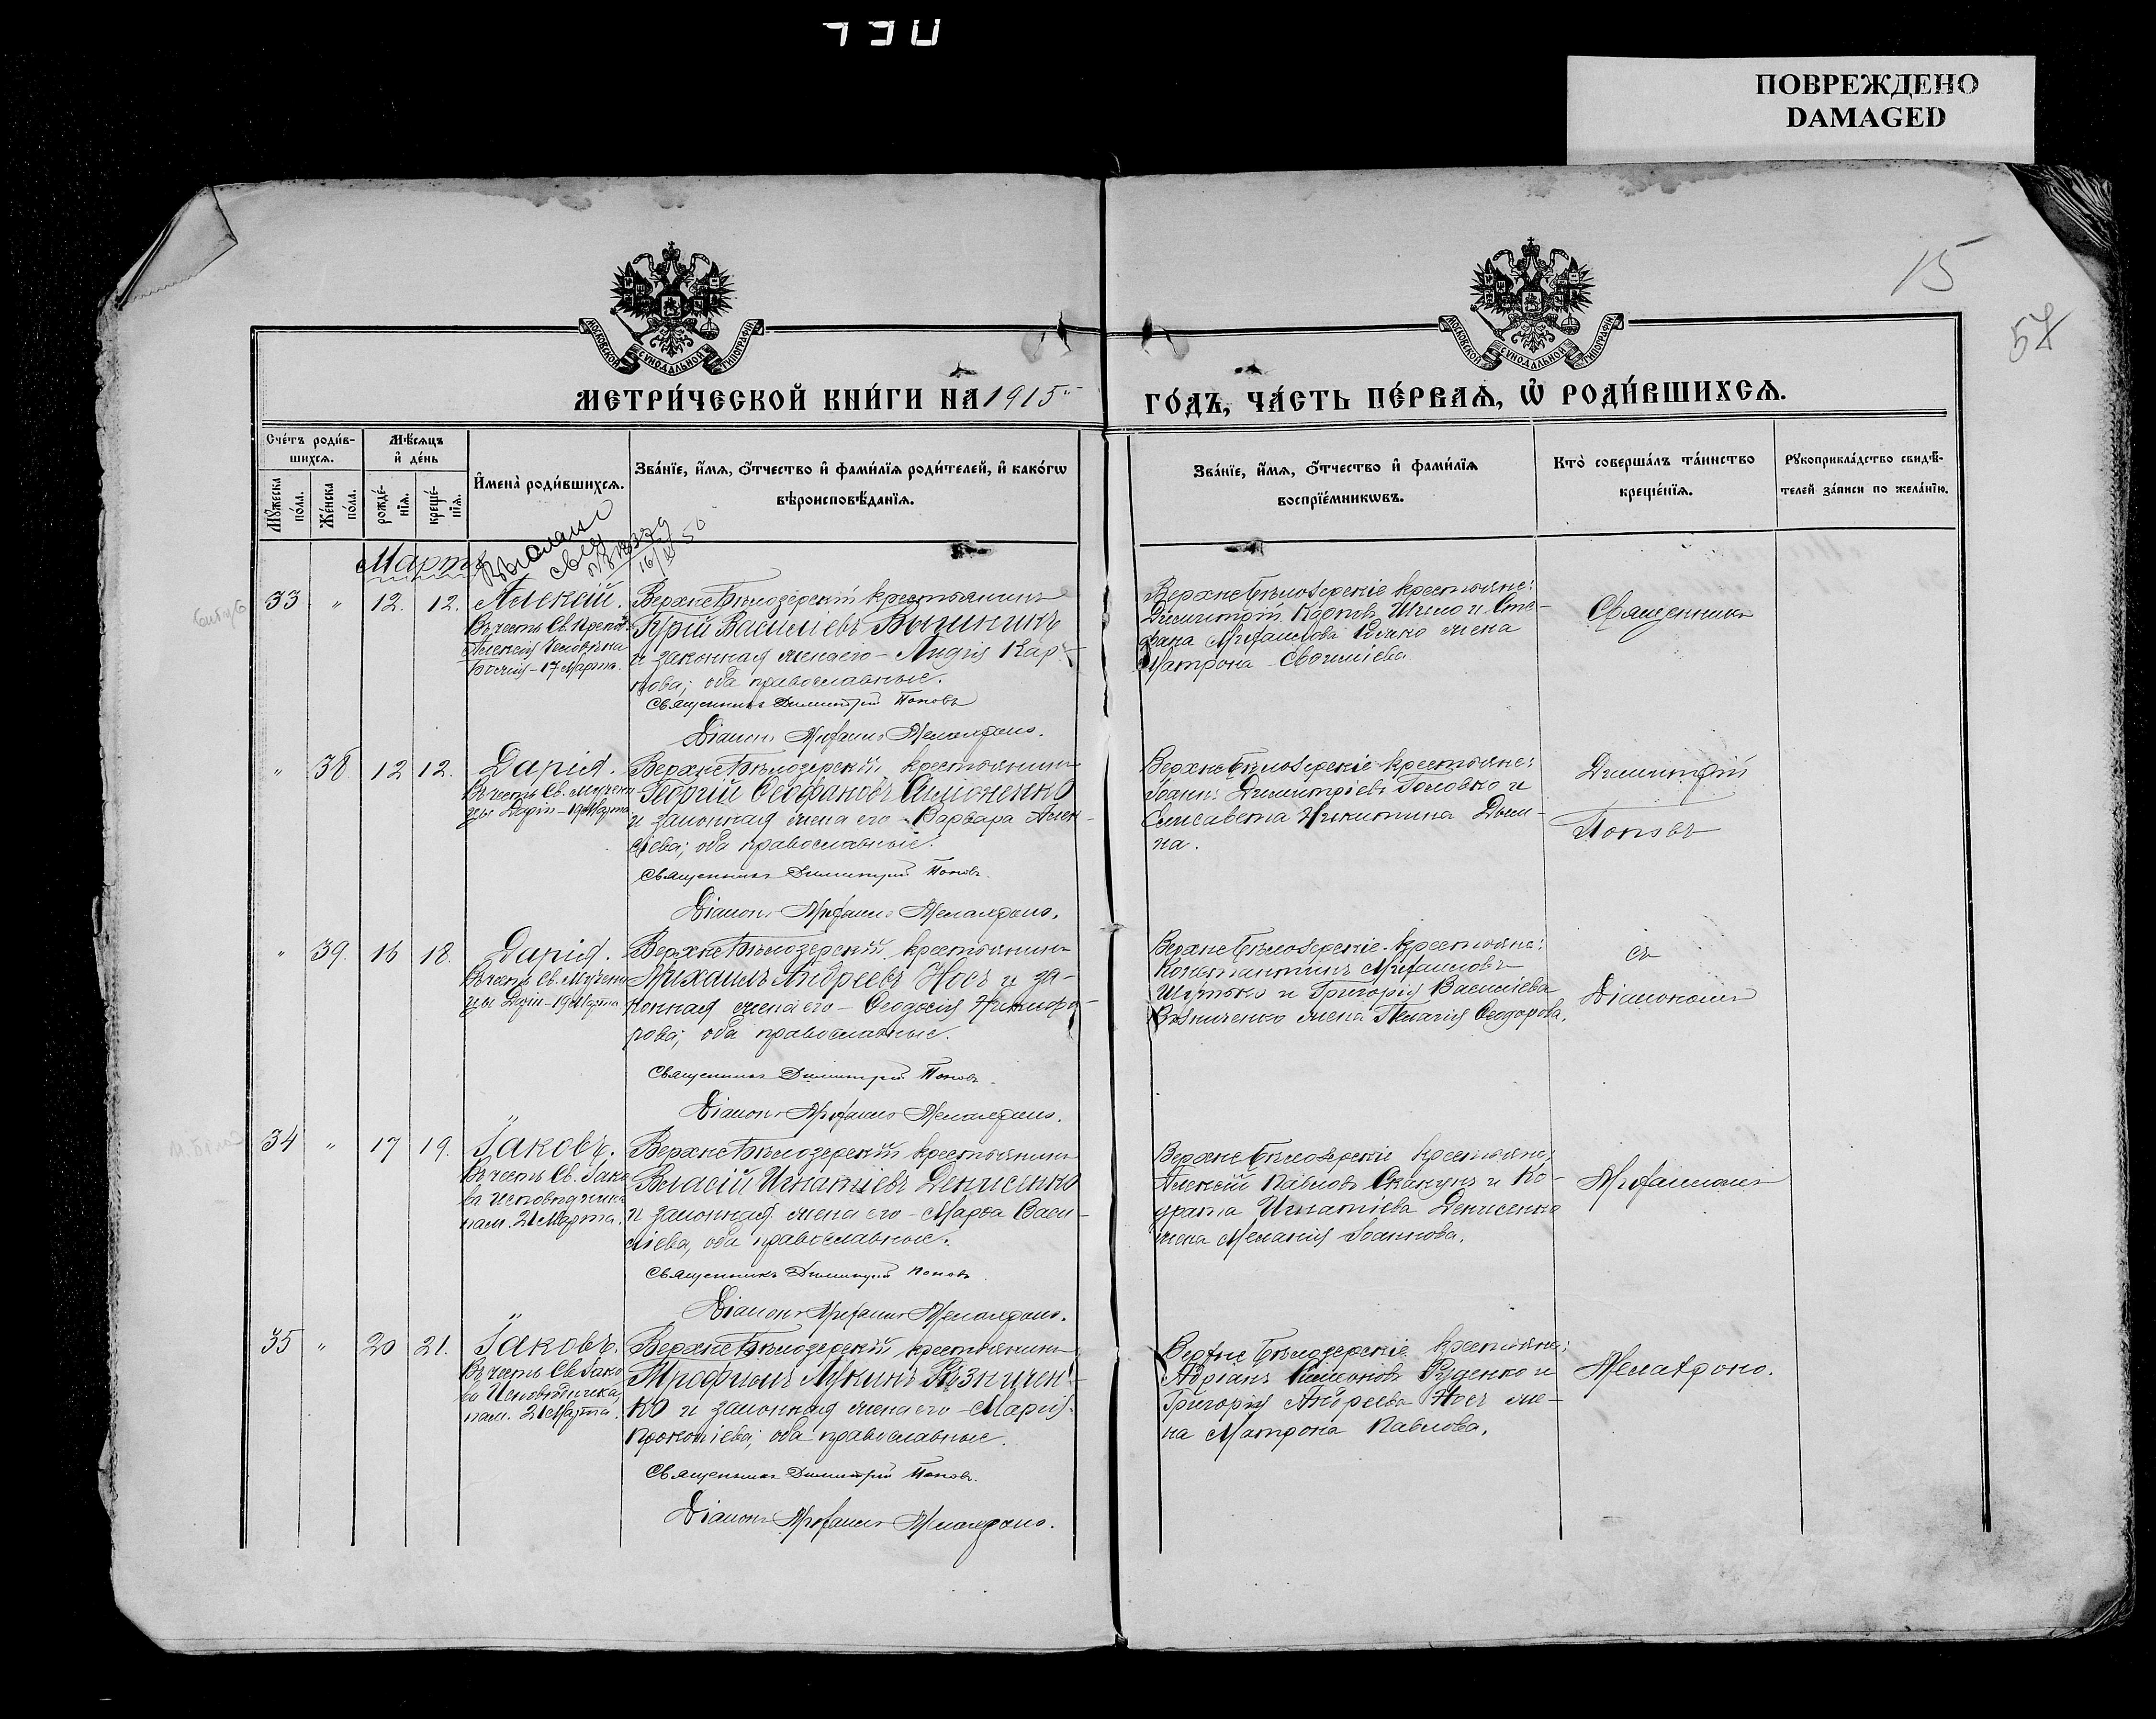 430
ПОВРЕЖДЕНО
DAMAGED
15
57
МОСКОВСКОЙ СѴНОДАЛЬНОЙ ТИПОГРАФІИ
МОСКОВСКОЙ СѴНОДАЛЬНОЙ ТИПОГРАФІИ
МЕТРИ́ЧЕСКОЙ КНИ́ГИ НА 1915
ГО́ДЪ, ЧА́СТЬ ПЕ́РВАѦ, Ѡ҆ РОДИ́ВШИХСѦ.
Сче́тъ роди́в-
шихсѧ.
Мꙋ́жеска по́ла.
Же́нска по́ла.
Мѣ́сѧцъ
и҆ де́нь
рожде́-
нїѧ.
креще́-
нїѧ.
И҆мена̀ роди́вшихсѧ.
Зва́нїе, и҆́мѧ, ѻ҆́тчество и҆ фами́лїѧ роди́телей, и҆ како́гѡ
вѣроисповѣ́данїѧ.
Зва́нїе, и҆́мѧ, ѻ҆́тчество и҆ фами́лїѧ
воспрїе́мникѡвъ.
Кто̀ соверша́лъ та́инство
креще́нїѧ.
Рꙋкоприкла́дство свидѣ́-
телей за́писи по жела́нїю.
Мартъ
33 " 12. 12. Алексій.
Въ честь Св. Препод.
Алексія Человѣка
Божія - 17 Марта.
ВерхнеБѣлозерскій крестьянинъ
Юрій Василіевъ
и законная жена его - Лидія Кар-
пова; оба православные.
Священникъ Димитрій Поповъ
Діаконъ
ВерхнеБѣлозерскіе крестьяне:
Димитрій Карповъ и Сте-
фана Михаилова жена
Матрона
Священникъ
" 38 12 12. Дарія.
Въ честь Св. Мучени
цы Даріи - 19 Марта
ВерхнеБѣлозерскій крестьянинъ
Георгій Ѳеофановъ Симоненко
и законная жена его - Варвара Алек-
сіева; оба православные.
Священникъ Димитрій Поповъ.
Діаконъ
ВерхнеБѣлозерскіе крестьяне:
Іоаннъ Димитріевъ Головко и
Елисавета Никитина
на.
Димитрій
Поповъ
" 39. 16 18. Дарія.
Въ честь Св. Мучени
цы Даріи - 19 Марта
ВерхнеБѣлозерскій крестьянинъ
Михаилъ Андреевъ Носъ и за-
конная жена его - Ѳеодосія Никифо-
рова; оба православные.
Священникъ Димитрій Поповъ.
Діаконъ
ВерхнеБѣлозерскіе крестьяне:
Константинъ Михаиловъ
и Григорія Василіева
жена Пелагія Ѳеодорова.
съ
Діакономъ
34 " 17 19. Іаковъ.
Въ честь Св. Іако
ва Исповѣдника
пам. 21 Марта.
ВерхнеБѣлозерскій крестьянинъ
Власій Игнатіевъ Денисенко
и законная жена его - Марѳа Васи-
ліева, оба православные.
Священникъ Димитрій Поповъ
Діаконъ
ВерхнеБѣлозерскіе крестьяне:
Алексій Павловъ Скакунъ и Ко-
драта Игнатіева Денисенко
жена Меланія Іоаннова.
35 " 20 21. Іаковъ.
Въ честь Св. Іако
ва Исповѣдника,
пам. 21 Марта.
ВерхнеБѣлозерскій крестьянинъ
Трофимъ Лукинъ Рѣзничен-
ко и законная жена его - Марія
Прокопіева; оба православные.
Священникъ Димитрій Поповъ.
Діаконъ
ВерхнеБѣлозерскіе крестьяне:
Адріанъ Симеоновъ Руденко и
Григорія Андреева Носъ же-
на Матрона Павлова.